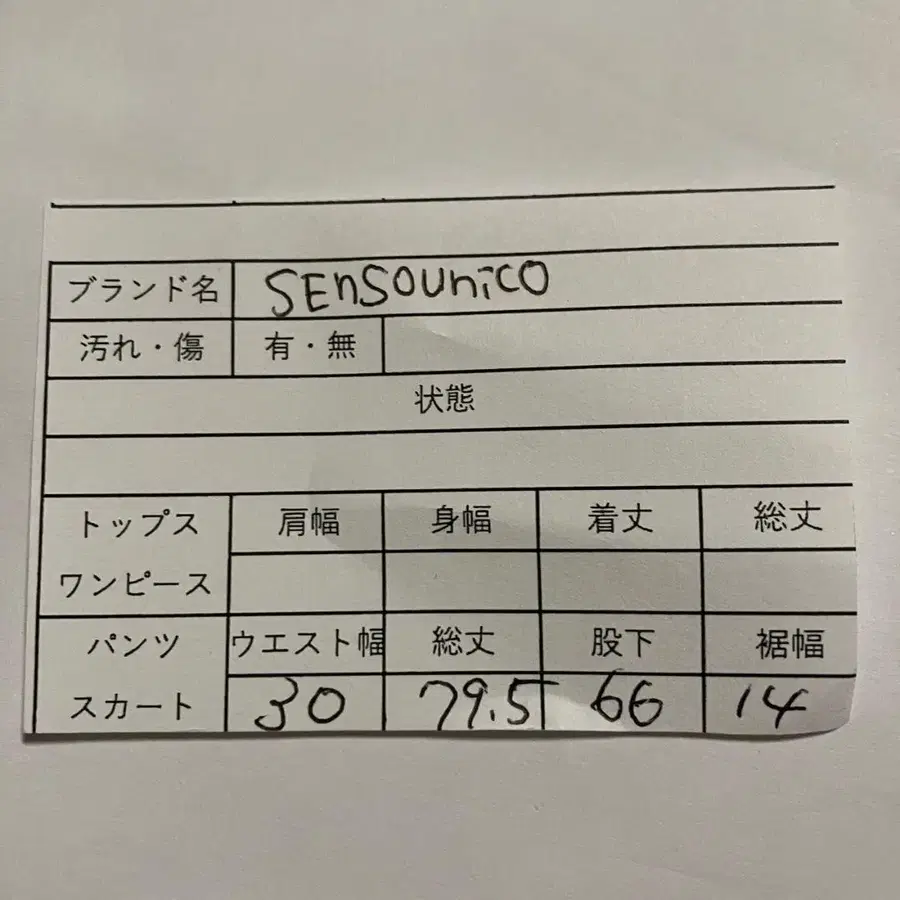 ブランド名 SEnSOuniCO
汚れ・傷 有・無
状態
トップス 肩幅 身幅 着丈 総丈
ワンピース
パンツ ウエスト幅 総丈 股下 裾幅
スカート 30 79.5 66 14